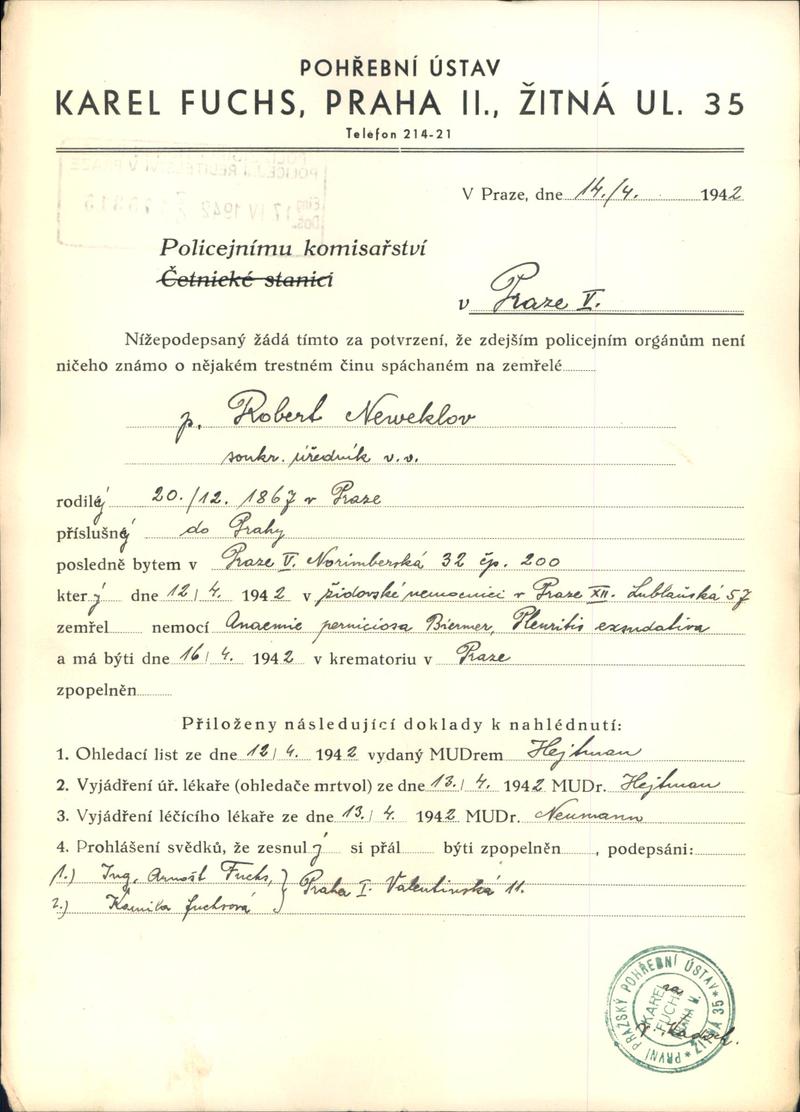 POHŘEBNÍ ÚSTAV
KAREL FUCHS, PRAHA II., ŽITNÁ UL. 35
Telefon 214-21
17 IV 1942
V Praze, dne 14./4. 1942
Policejnímu komisařství
Četnické stanici
v Praze V.
Nížepodepsaný žádá tímto za potvrzení, že zdejším policejním orgánům není
ničeho známo o nějakém trestném činu spáchaném na zemřelé
p. Robert Neweklov
soukr. úředník v.v.
rodilý 20./12. 1867 v Praze
příslušný do Prahy
posledně bytem v Praze V. Norimberská 32 čp. 200
který dne 12/4. 1942 v židovské nemocnici v Praze XII. Lublaňská 57
zemřel nemocí Anaemie perniciosa Biermer, Pleuritis exsudativa
a má býti dne 16/4. 1942 v krematoriu v Praze
zpopelněn
Přiloženy následující doklady k nahlédnutí:
1. Ohledací list ze dne 12/4. 1942 vydaný MUDrem Hejtman
2. Vyjádření úř. lékaře (ohledače mrtvol) ze dne 13./4. 1942 MUDr. Hejtman
3. Vyjádření léčícího lékaře ze dne 13./4. 1942 MUDr. Neumann
4. Prohlášení svědků, že zesnulý si přál býti zpopelněn, podepsáni:
1.) Ing. Arnošt Fuchs,
2.) Kamila Fuchsová } Praha I. Valentinská 11.
PRVNÍ PRAŽSKÝ POHŘEBNÍ ÚSTAV * ŽITNÁ 35 *
KAREL
FUCHS